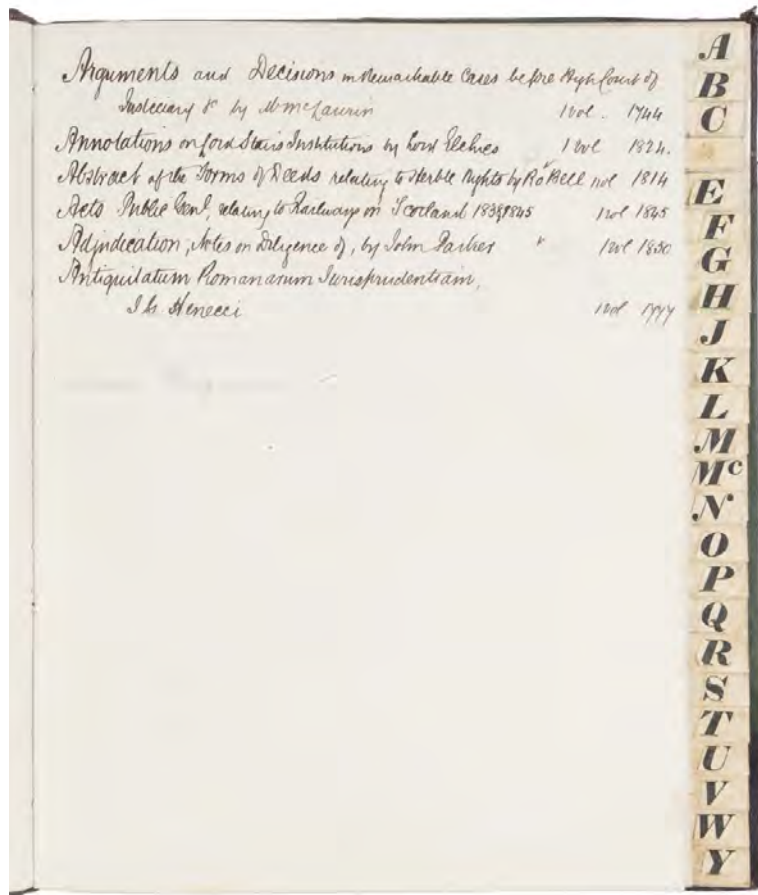 Arguments and Decisions in Remarkable Cases before High Court of
Justiciary &c by Mr McLaurin 1 vol. 1744
Annotations on Lord Stairs Institutions by Lord Elchies 1 vol 1824.
Abstract of the Forms of Deeds relating to Herble Rights by Rot Bell 1 vol 1814
Acts Public Genl, relating to Railways on Scotland 1838 1845 1 vol 1845
Adjudication, Notes on Diligence of, by John Parker 1 vol 1850
Antiquitatum Romanarum Jurisprudentiam,
I G Heinecci 1 vol 1777
A
B
C
E
F
G
H
J
K
L
M
Mc
N
O
P
Q
R
S
T
U
V
W
Y